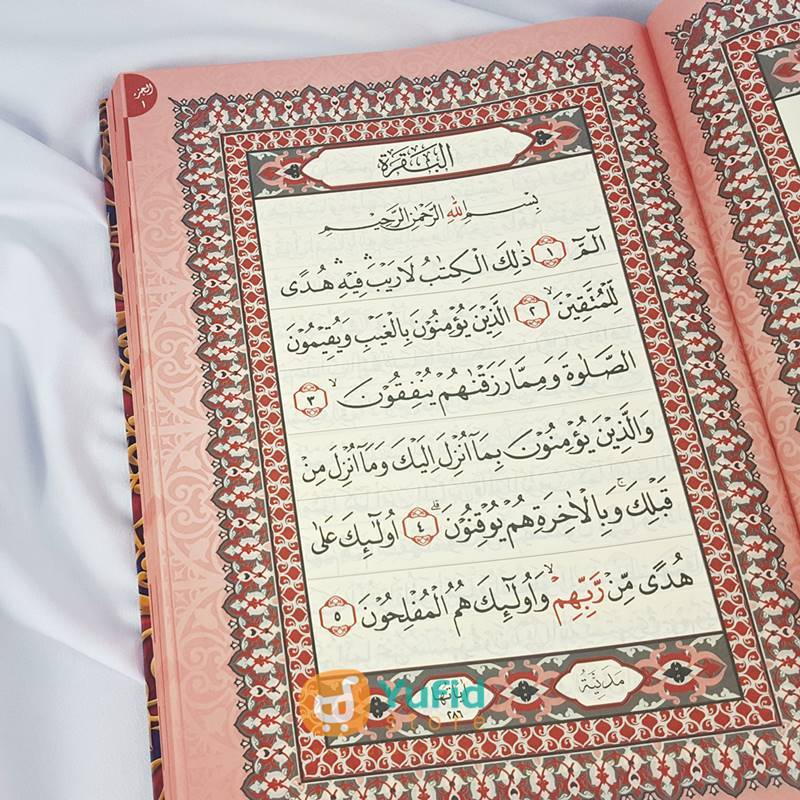 الجزء
١
البقرة
بِسْمِ اللهِ الرَّحْمٰنِ الرَّحِيْمِ
الۤمّۤ ۝١ ذٰلِكَ الْكِتٰبُ لَا رَيْبَ ۛ فِيْهِ ۛ هُدًى
لِّلْمُتَّقِيْنَ ۙ ۝٢ الَّذِيْنَ يُؤْمِنُوْنَ بِالْغَيْبِ وَيُقِيْمُوْنَ
الصَّلٰوةَ وَمِمَّا رَزَقْنٰهُمْ يُنْفِقُوْنَ ۙ ۝٣
وَالَّذِيْنَ يُؤْمِنُوْنَ بِمَآ اُنْزِلَ اِلَيْكَ وَمَآ اُنْزِلَ مِنْ
قَبْلِكَ ۚ وَبِالْاٰخِرَةِ هُمْ يُوْقِنُوْنَ ۗ ۝٤ اُولٰۤىِٕكَ عَلٰى
هُدًى مِّنْ رَّبِّهِمْ ۙ وَاُولٰۤىِٕكَ هُمُ الْمُفْلِحُوْنَ ۝٥
مَدَنِيَّة
اٰياتها
٢٨٦
Yufid
store